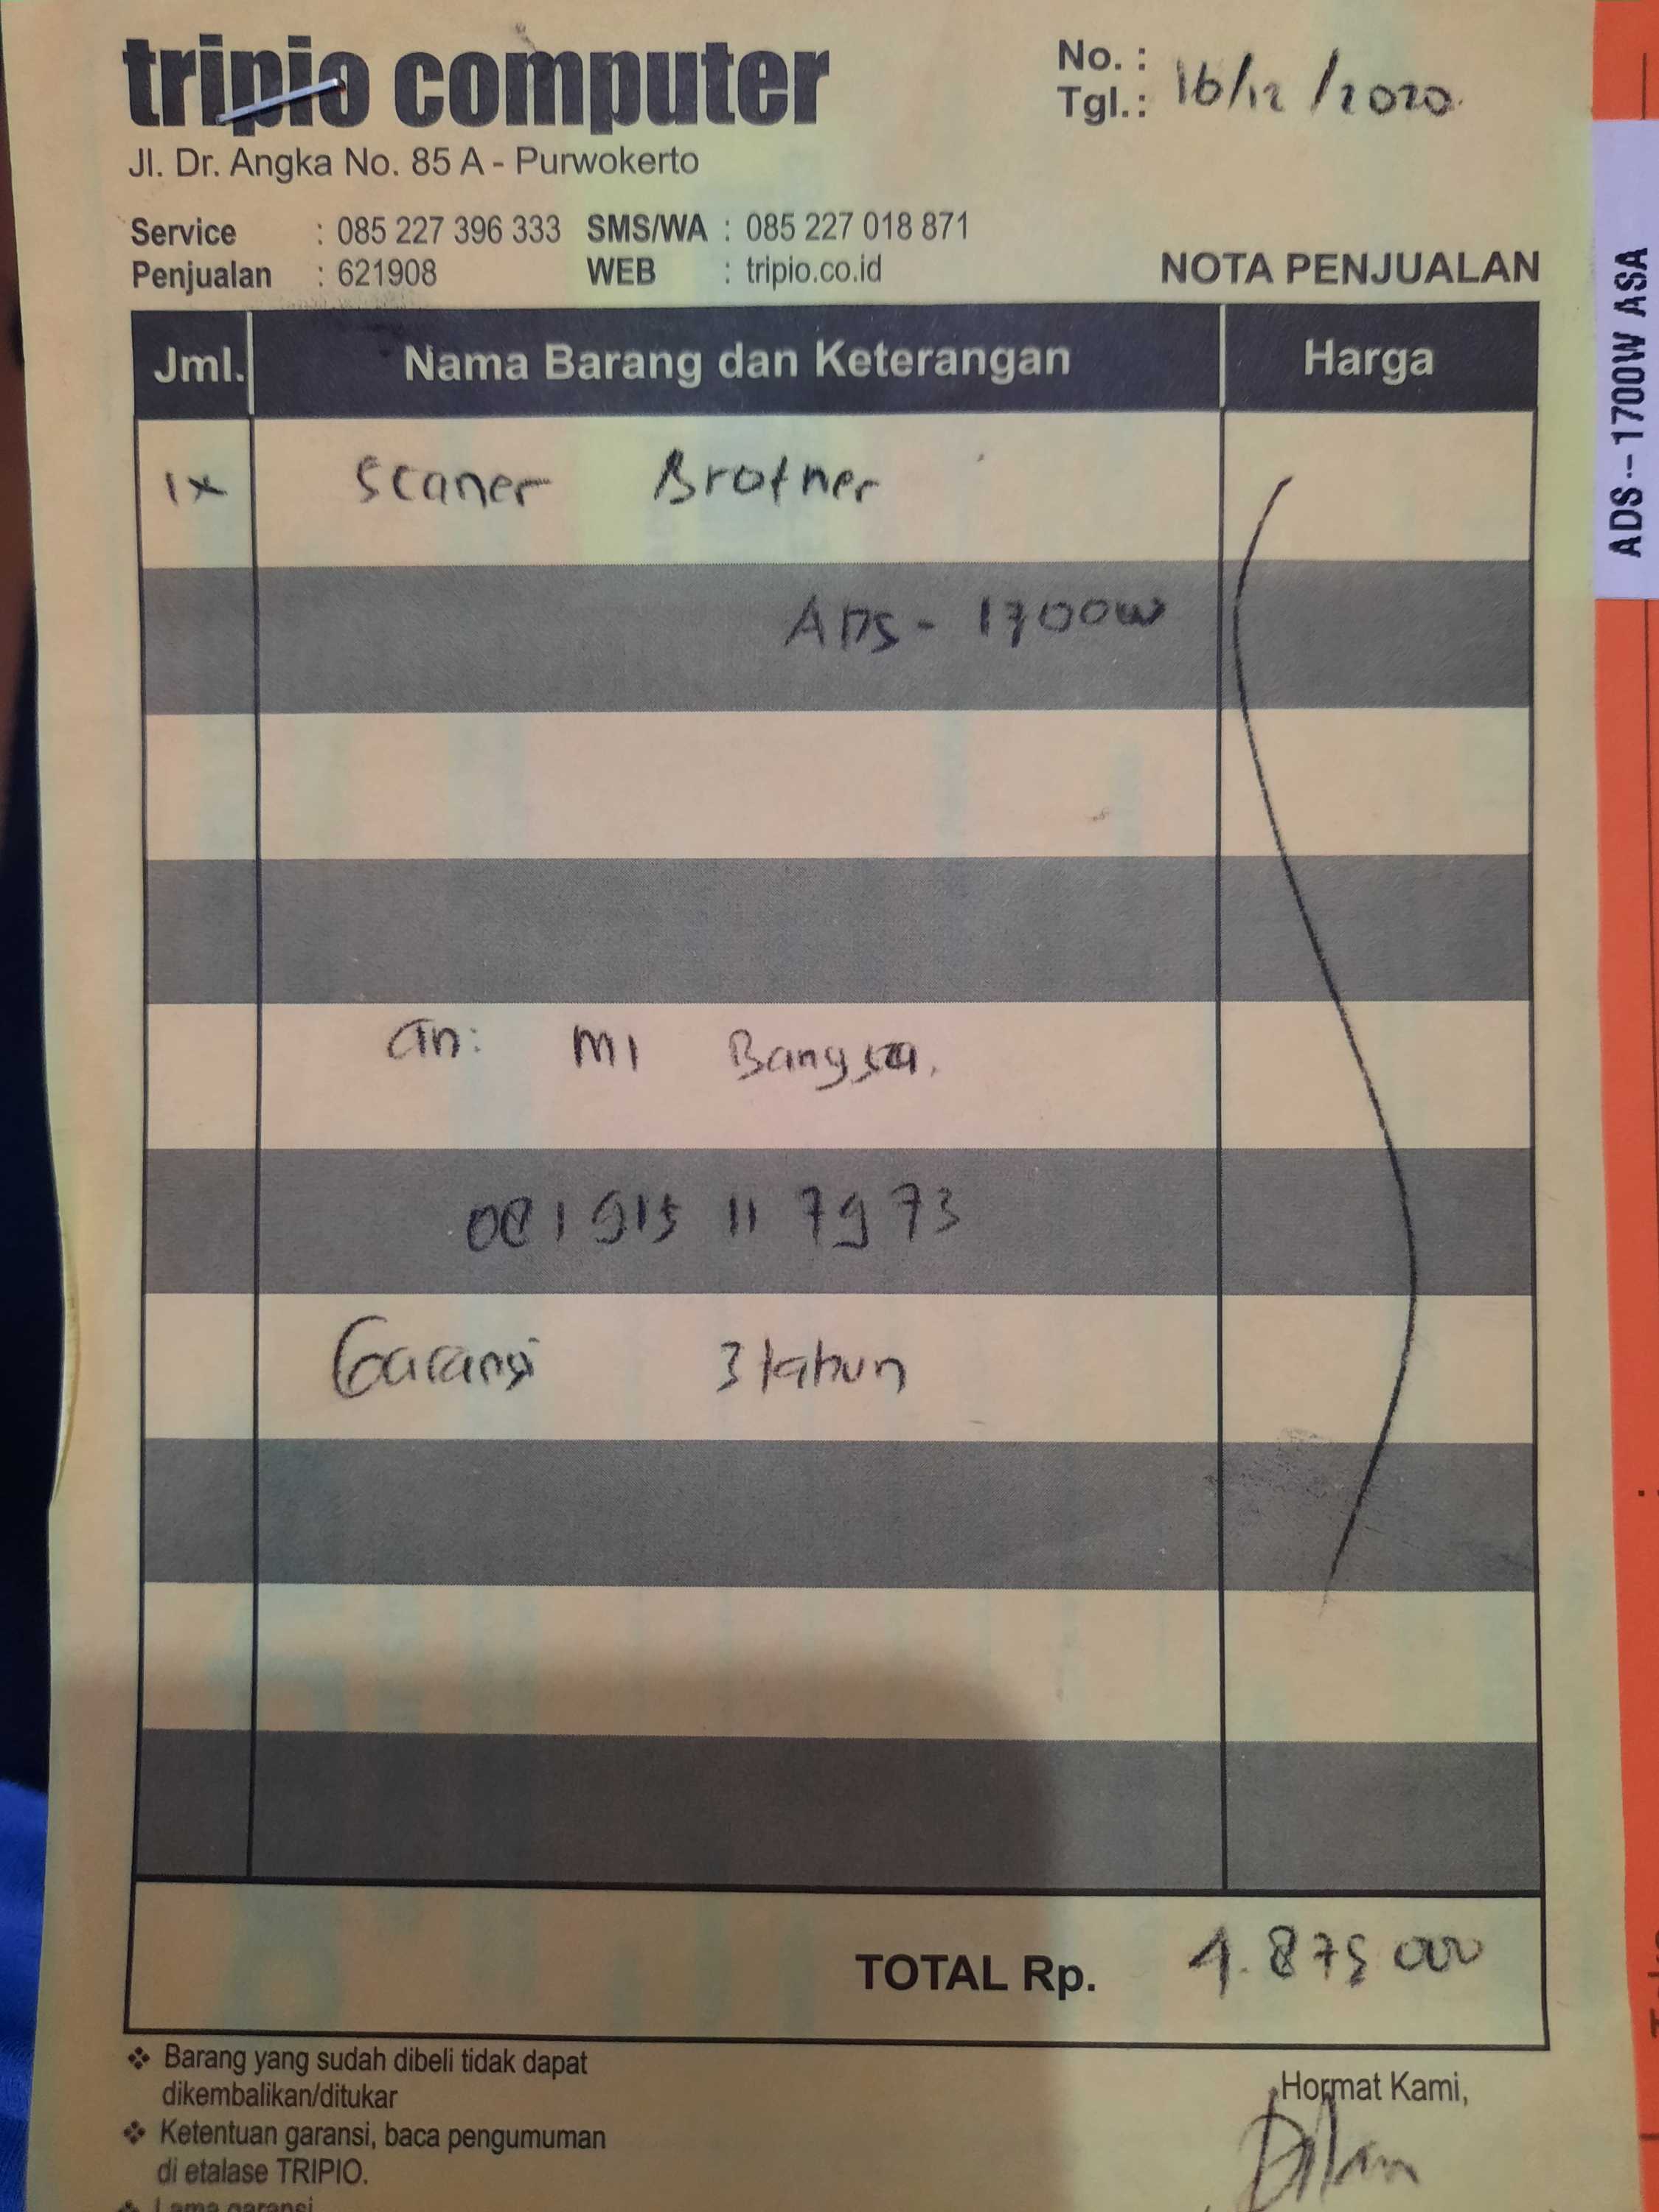 tripio computer
Jl. Dr. Angka No. 85 A - Purwokerto
No. :
Tgl. : 16/12/2020
Service : 085 227 396 333 SMS/WA : 085 227 018 871
Penjualan : 621908 WEB : tripio.co.id
NOTA PENJUALAN
Jml. Nama Barang dan Keterangan Harga
1x Scaner Brother
ADS - 1700W
an: MI Bangsa.
Garansi 3 tahun
TOTAL Rp. 4.875 000
❖ Barang yang sudah dibeli tidak dapat
dikembalikan/ditukar
❖ Ketentuan garansi, baca pengumuman
di etalase TRIPIO.
❖ Lama garansi
Hormat Kami,
ADS -- 1700W ASA